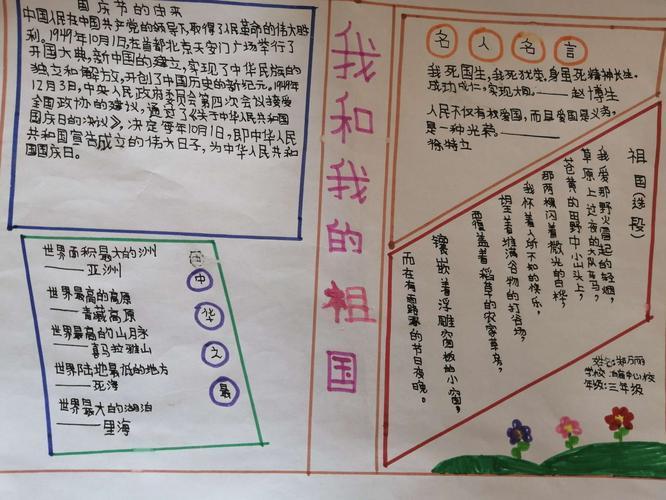 国庆节的由来
中国人民在中国共产党的领导下,取得了人民革命的伟大胜
利。1949年10月1日,在首都北京天安门广场举行了
开国大典,新中国的建立,实现了中华民族的
独立和解方立,开创了中国历史的新纪元。1949年
12月3日,中央人民政府委员会第四次会议接受
全国政协的建议,通过了《关于中华人民共和国
国庆日的决议》,决定每年10月1日,即中华人民
共和国宣告成立的伟大日子,为中华人民共和
国国庆日。
世界面积最大的洲
——亚洲
世界最高的高原
——青藏高原
世界最高的山脉
——喜马拉雅山
世界陆地最低的地方
——死海
世界最大的湖泊
——里海
中
华
之
最
我和我的祖国
名人名言
我死国生,我死犹荣,身虽死精神长生,
成功成仁,实现大同。——赵博生
人民不仅有权爱国,而且爱国是义务,
是一种光荣。——
徐特立
祖国(选段)
我爱那野火冒起的轻烟,
草原上过夜的大队车马,
苍黄的田野中小山头上,
那两棵闪着微光的白桦,
我怀着人所不知的快乐,
望着堆满谷物的打谷场,
覆盖着稻草的农家草房,
镶嵌着浮雕窗板的小窗,
而在有雨露的节日夜晚。
学校:中心校
年级:三年级